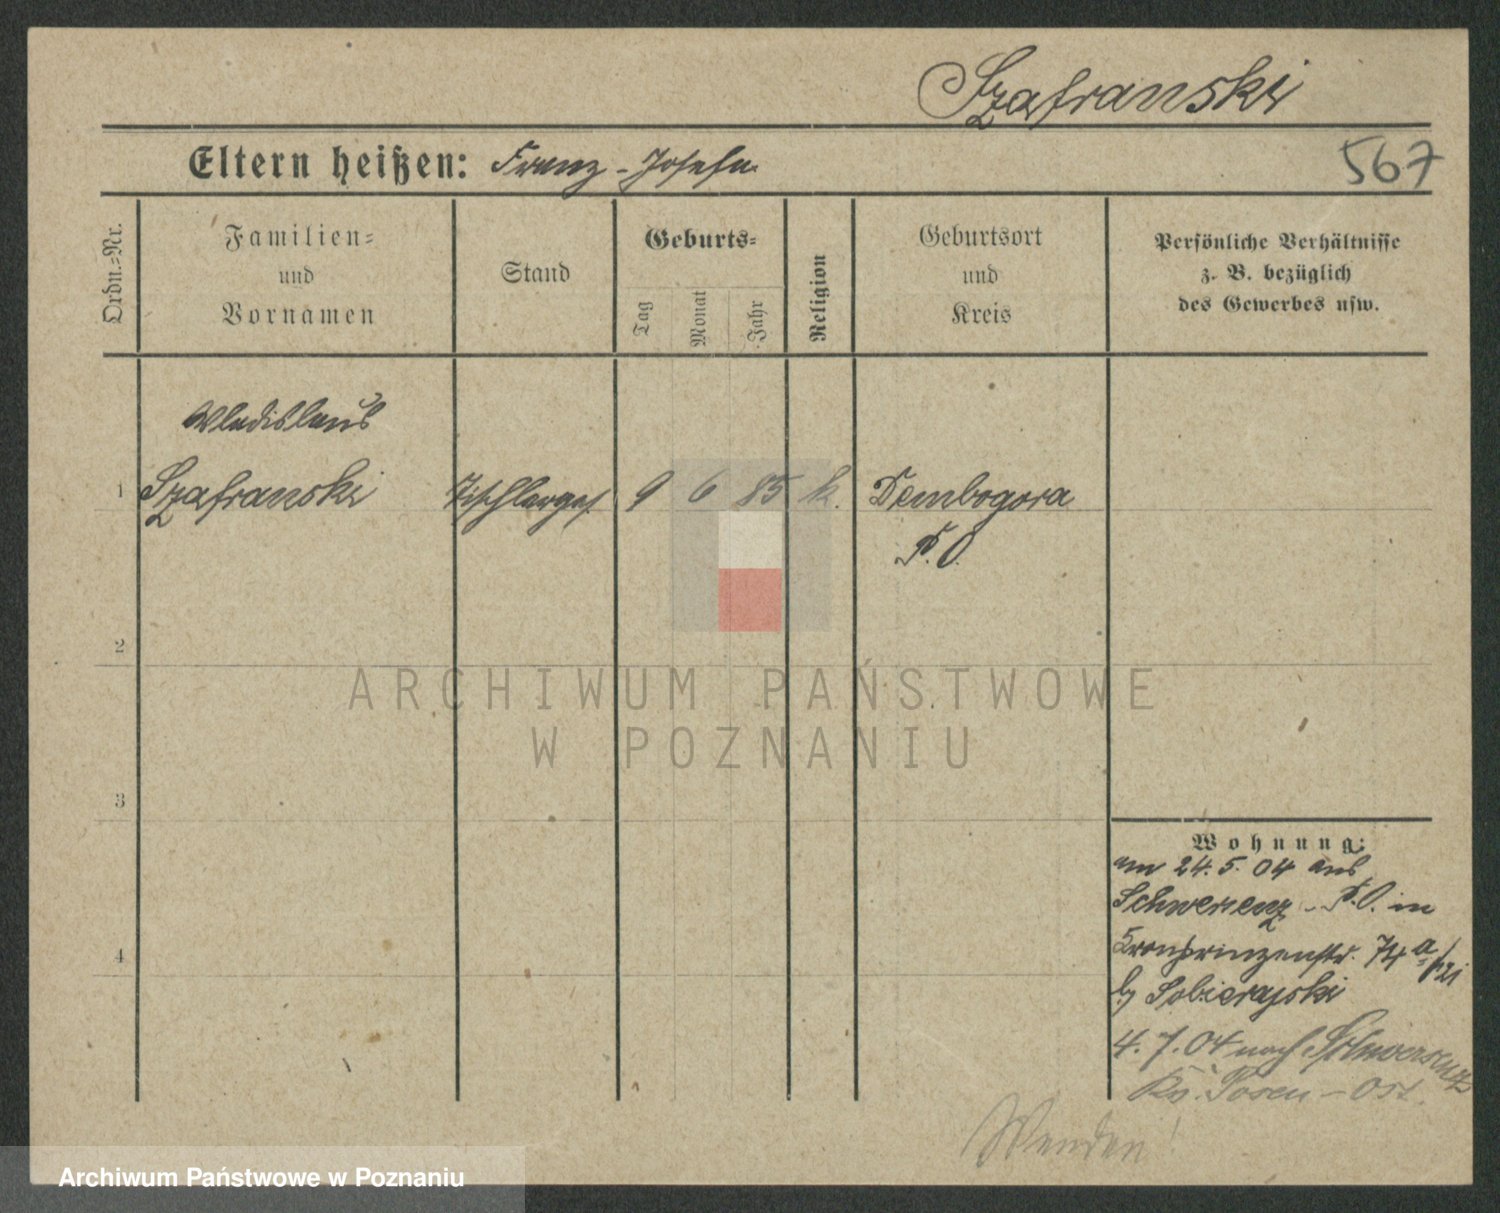 Szafranski
Eltern heißen: Franz - Josefa
567
Ordn.=Nr.
Familien=
und
Vornamen
Stand
Geburts=
Tag
Monat
Jahr
Religion
Geburtsort
und
Kreis
Persönliche Verhältnisse
z. B. bezüglich
des Gewerbes usw.
Wladislaus
1 Szafranski Tischlerges. 9 6 85 k. Dembogora
P. O.
2
3
4
Wohnung:
am 24. 5. 04 aus
Schwersenz - P. O. in
Kronprinzenstr. 74 a
b/ Sobierajski
4. 7. 04 nach Schwersenz
Kr. Posen - Ost.
Wenden!
ARCHIWUM PAŃSTWOWE
W POZNANIU
Archiwum Państwowe w Poznaniu